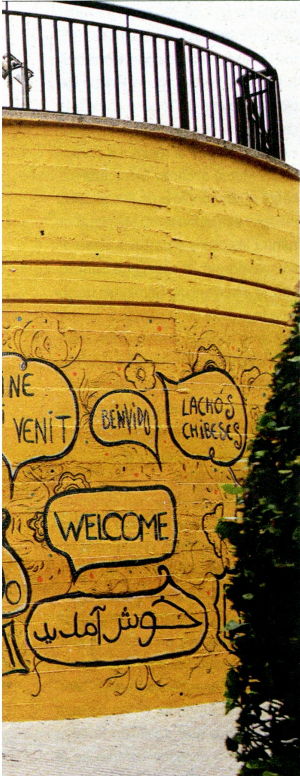 NE
VENIT
BENVIDO
LACHÓS
CHIBESES
WELCOME
خوش آمدید